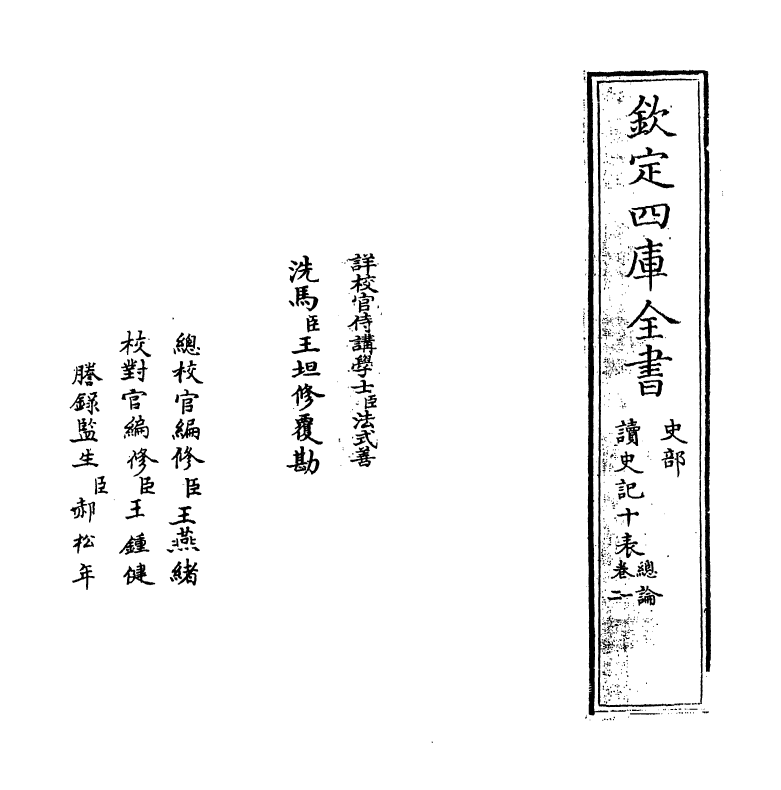 欽定四庫全書
史部
讀史記十表
總論
卷二
詳校官侍講學士臣法式善
洗馬臣王坦修覆勘
總校官編修臣王燕緒
校對官編修臣王鍾健
謄錄監生臣郝松年